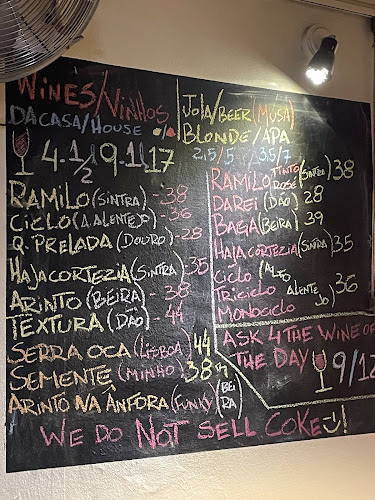 WINES/VINHOS
DA CASA/HOUSE
4. 1/2 9. 1l 17
JOLA/BEER (MUSA)
BLONDE/APA
2,5/5 3,5/7
RAMILO (SINTRA) - 38
CICLO (A. ALENTEJO) - 36
Q. PRELADA (DOURO) - 28
HAJACORTEZIA (SINTRA) - 35
ARINTO (BEIRA) - 38
TEXTURA (DÃO) - 44
SERRA OCA (LISBOA) 44
SEMENTE (MINHO) 38
ARINTO NA ÂNFORA (FUNKY) (BEIRA)
RAMILO TINTO ROSÉ (SINTRA) 38
DAREI (DÃO) 28
BAGA (BEIRA) 39
HAJA CORTEZIA (SINTRA) 35
CICLO (ALTO
TRICICLO ALENTEJO) 36
MONOCICLO
ASK 4 THE WINE OF
THE DAY 9/12
WE DO NOT SELL COKE :)!